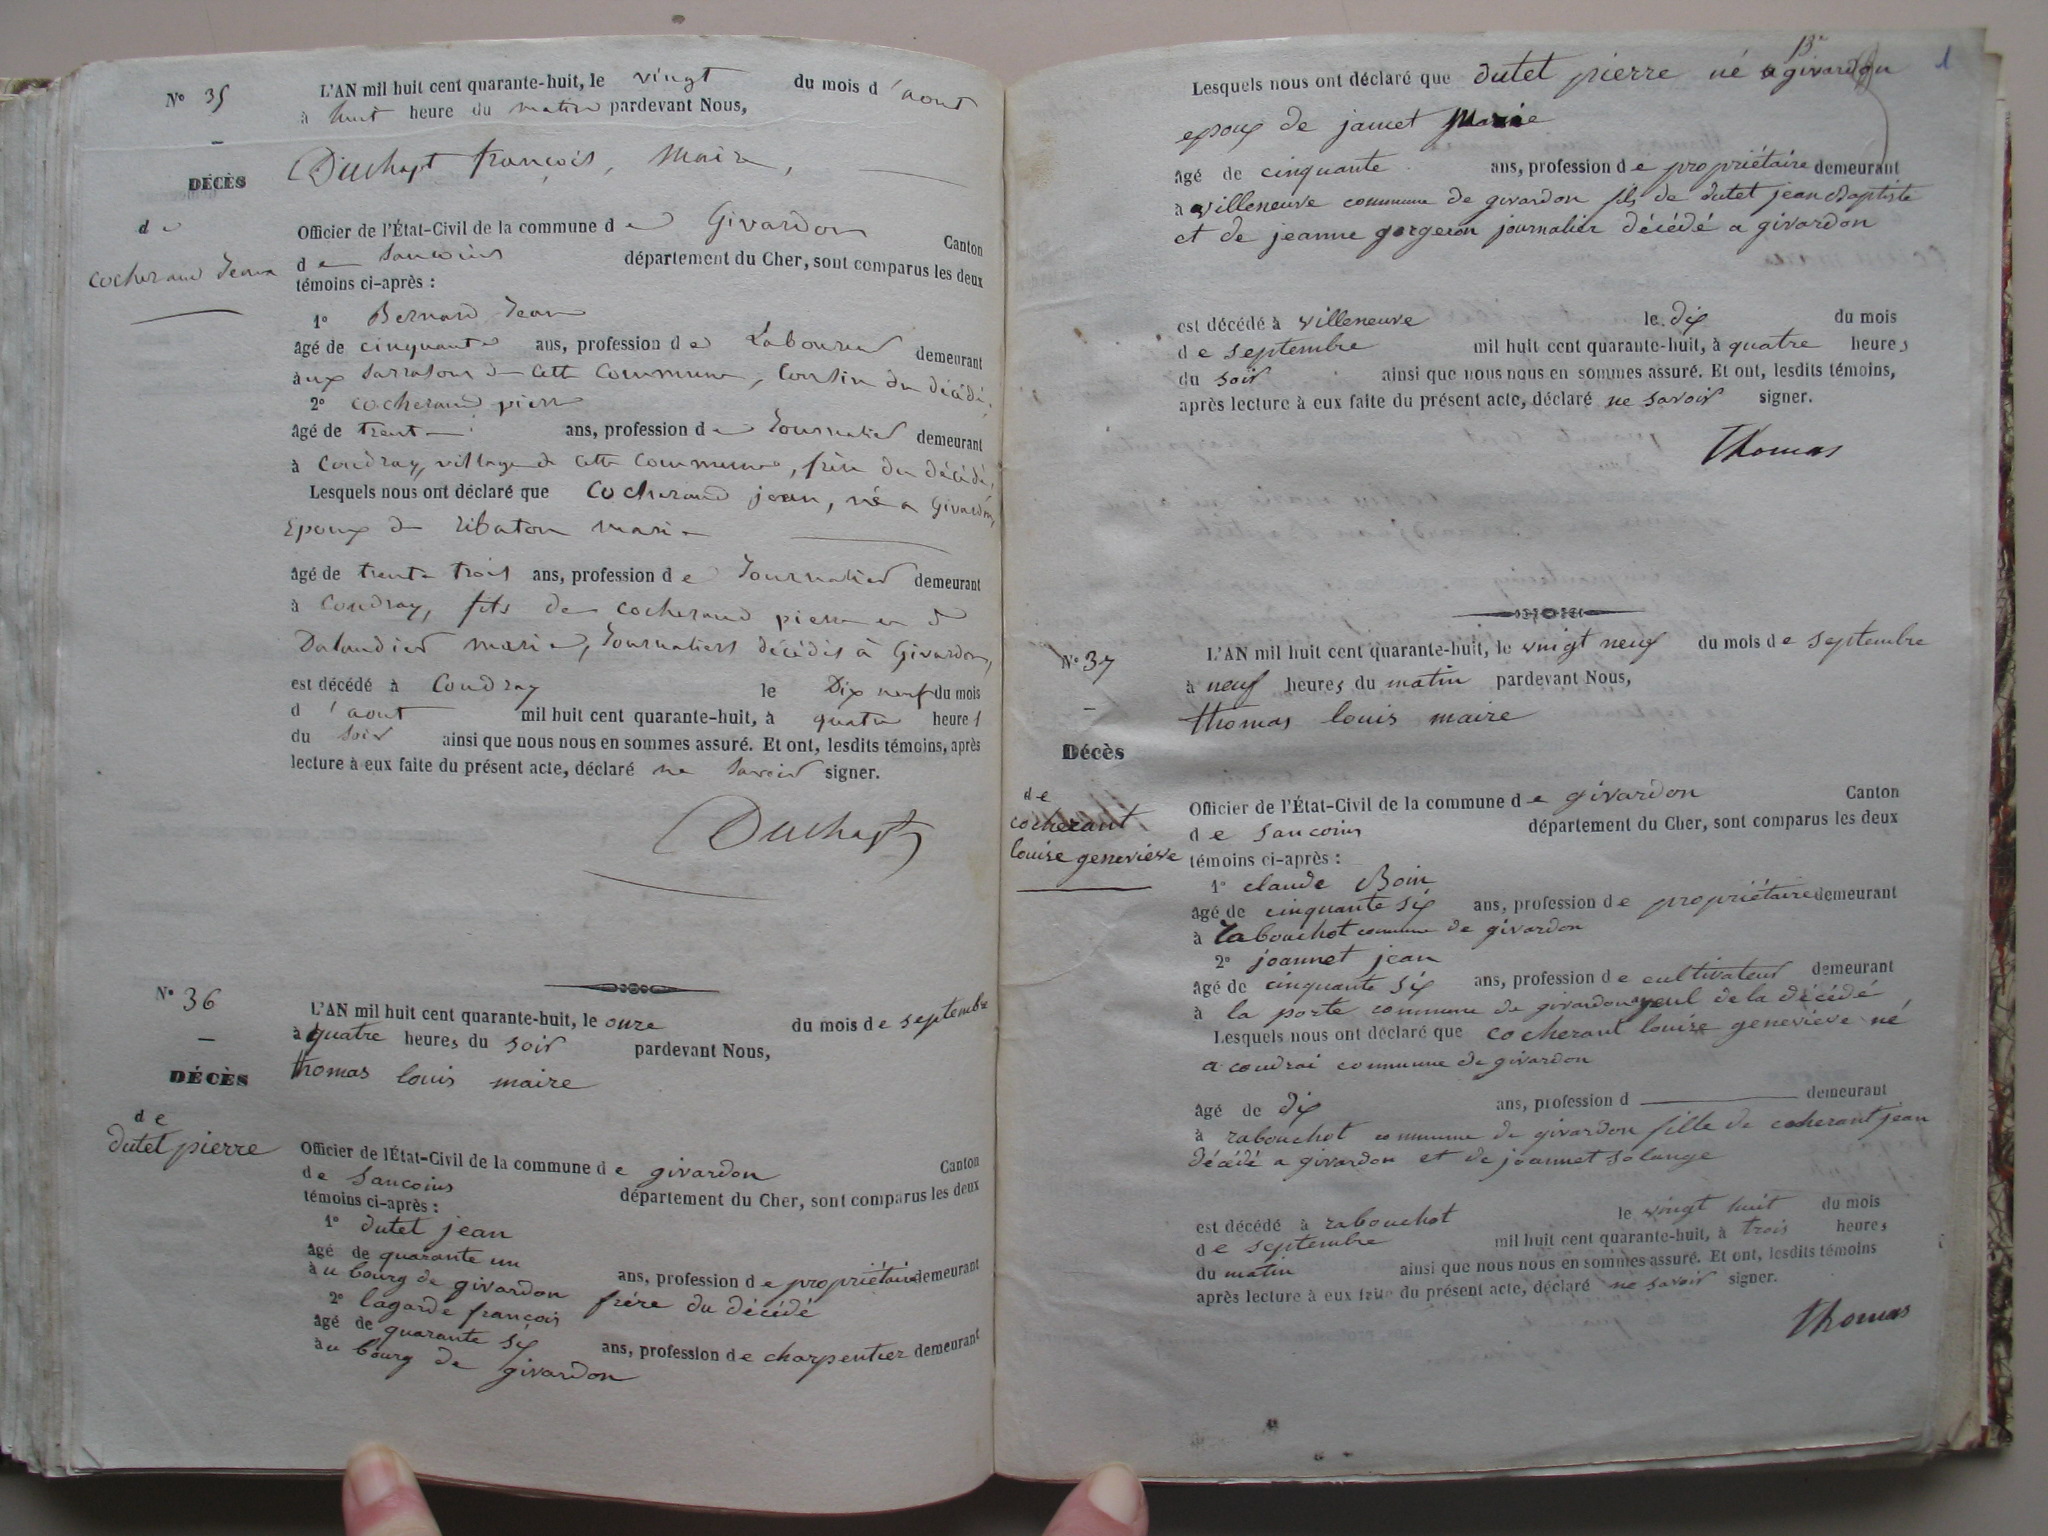 N° 35
L'AN mil huit cent quarante-huit, le vingt du mois d'aout
à huit heure du matin pardevant Nous,
Duchapt françois, Maire,
DÉCÈS
de
cocheraud Jean
Officier de l'État-Civil de la commune de Givardon Canton
de Sancoins département du Cher, sont comparus les deux
témoins ci-après :
1° Bernard Jean
âgé de cinquante ans, profession de Laboureur demeurant
àux Sarrasons de cette Commune, Cousin du décédé,
2° cocheraud pierre
âgé de trente ans, profession de Journalier demeurant
à Coudray, village de cette Commune, frère du décédé,
Lesquels nous ont déclaré que Cocheraud jean, né a Givardon,
Epoux de Marie
âgé de trente trois ans, profession de Journalier demeurant
à Coudray, fils de cocheraud pierre et de
Dalaudier marie, Journaliers décédés à Givardon,
est décédé à Coudray le Dix neuf du mois
d'aout mil huit cent quarante-huit, à quatre heures
du soir ainsi que nous nous en sommes assuré. Et ont, lesdits témoins, après
lecture à eux faite du présent acte, déclaré ne savoir signer.
Duchapt
N° 36
L'AN mil huit cent quarante-huit, le onze du mois de septembre
à quatre heures du soir pardevant Nous,
thomas louis maire
DÉCÈS
de
dutet pierre
Officier de l'État-Civil de la commune de givardon Canton
de Sancoins département du Cher, sont comparus les deux
témoins ci-après :
1° dutet jean
âgé de quarante un ans, profession de propriétaire demeurant
àu bourg de givardon frére du décédé
2° lagarde françois
âgé de quarante six ans, profession de charpentier demeurant
àu bourg de givardon
1
Lesquels nous ont déclaré que dutet pierre né a givardon
epoux de jamet Marie
âgé de cinquante ans, profession de propriétaire demeurant
à villeneuve commune de givardon fils de dutet jean Baptiste
et de jeanne gorgeron journalier décédé a givardon
est décédé à villeneuve le dix du mois
de septembre mil huit cent quarante-huit, à quatre heures
du soir ainsi que nous nous en sommes assuré. Et ont, lesdits témoins,
après lecture à eux faite du présent acte, déclaré ne savoir signer.
Thomas
N° 37
L'AN mil huit cent quarante-huit, le vingt neuf du mois de septembre
à neuf heures du matin pardevant Nous,
thomas louis maire
Décès
de
cocherant
louise geneviéve
Officier de l'État-Civil de la commune de givardon Canton
de Sancoins département du Cher, sont comparus les deux
témoins ci-après :
1° claude Boin
âgé de cinquante six ans, profession de propriétaire demeurant
à rabouchot commune de givardon
2° joannet jean
âgé de cinquante six ans, profession de cultivateur demeurant
à la porte commune de givardon ayeul de la décédé
Lesquels nous ont déclaré que cocherant louise genevieve né
a coudrai commune de givardon
âgé de dix ans, profession d demeurant
à rabouchot commune de givardon fille de cocherant jean
décédé a givardon et de joannet solange
est décédé à rabouchot le vingt huit du mois
de septembre mil huit cent quarante-huit, à trois heures
du matin ainsi que nous nous en sommes assuré. Et ont, lesdits témoins
après lecture à eux faite du présent acte, déclaré ne savoir signer.
thomas